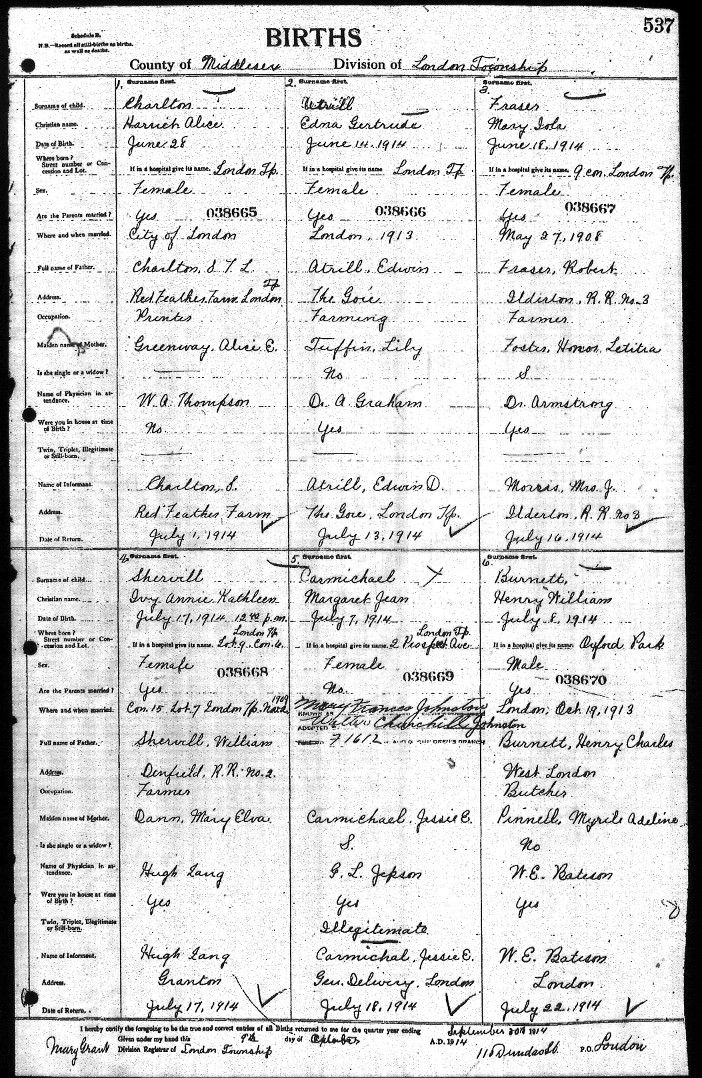 537
Schedule B.
N.B.—Record all still-births as births, as well as deaths.
BIRTHS
County of Middlesex Division of London Township
1. Surname first. 2. Surname first. 3. Surname first.
Surname of child. Charlton Atrill Fraser
Christian name. Harriet Alice Edna Gertrude Mary Iola
Date of Birth. June 28 June 14. 1914 June 18, 1914
Where born? Street number or Concession and Lot. If in a hospital give its name. London Tp. If in a hospital give its name. London Tp If in a hospital give its name. 9 con. London Tp.
Sex. Female Female Female
Are the Parents married? Yes 038665 Yes 038666 Yes 038667
Where and when married. City of London London, 1913 May 27, 1908
Full name of Father. Charlton, S. T. L. Atrill, Edwin Fraser, Robert
Address. Red Feather Farm, London Tp The Gore Ilderton, R.R. No. 3
Occupation. Printer Farming Farmer
Maiden name of Mother. Greenway, Alice E. Tuffin, Lily Foster, Honor Letitia
Is she single or a widow? No S
Name of Physician in attendance. W. A. Thompson D. A Graham Dr. Armstrong
Were you in house at time of Birth? No. Yes Yes
Twin, Triplet, Illegitimate or Still-born.
Name of Informant. Charlton, S. Atrill, Edwin D. Morris, Mrs. J.
Address. Red Feather Farm The Gore, London Tp. Ilderton, R.R. no 3
Date of Return. July 1, 1914 July 13, 1914 July 16, 1914
4. Surname first. 5. Surname first. 6. Surname first.
Surname of child. Shervill Carmichael Burnett,
Christian name. Ivy Annie Kathleen Margaret Jean Henry William
Date of Birth. July 17, 1914 12 p.m. July 7, 1914 July 8, 1914
Where born? Street number or Concession and Lot. If in a hospital give its name. London Tp. Lot 9. Con. 6. If in a hospital give its name. London Tp. 2 Prospect Ave If in a hospital give its name. Oxford Park
Sex. Female 038668 Female 038669 Male 038670
Are the Parents married? Yes No. Yes
Where and when married. Con. 15. Lot. 7 London Tp. 1909 Mary Frances Johnston London, Oct. 19, 1913
ADOPTED Walter Churchill Johnston
71612
Full name of Father. Shervill, William Burnett, Henry Charles
Address. Denfield, R.R. No. 2. West London
Occupation. Farmer Butcher
Maiden name of Mother. Dann, Mary Elva Carmichael, Jessie E. Pinnell, Myrile Adeline
Is she single or a widow? S. No
Name of Physician in attendance. Hugh Lang G. L. Jepson W. E. Bateson
Were you in house at time of Birth? Yes Yes Yes
Twin, Triplet, Illegitimate or Still-born. Illegitimate
Name of Informant. Hugh Lang Carmichal, Jessie E. W. E. Bateson
Address. Granton Gen. Delivery, London London
Date of Return. July 17, 1914 July 18, 1914 July 22, 1914
I hereby certify the foregoing to be the true and correct entries of all Births returned to me for the quarter year ending September 30th 1914
Given under my hand this 9th day of October A.D. 1914
Mary Grant Division Registrar of London Township 110 Dundas St. P.O. London